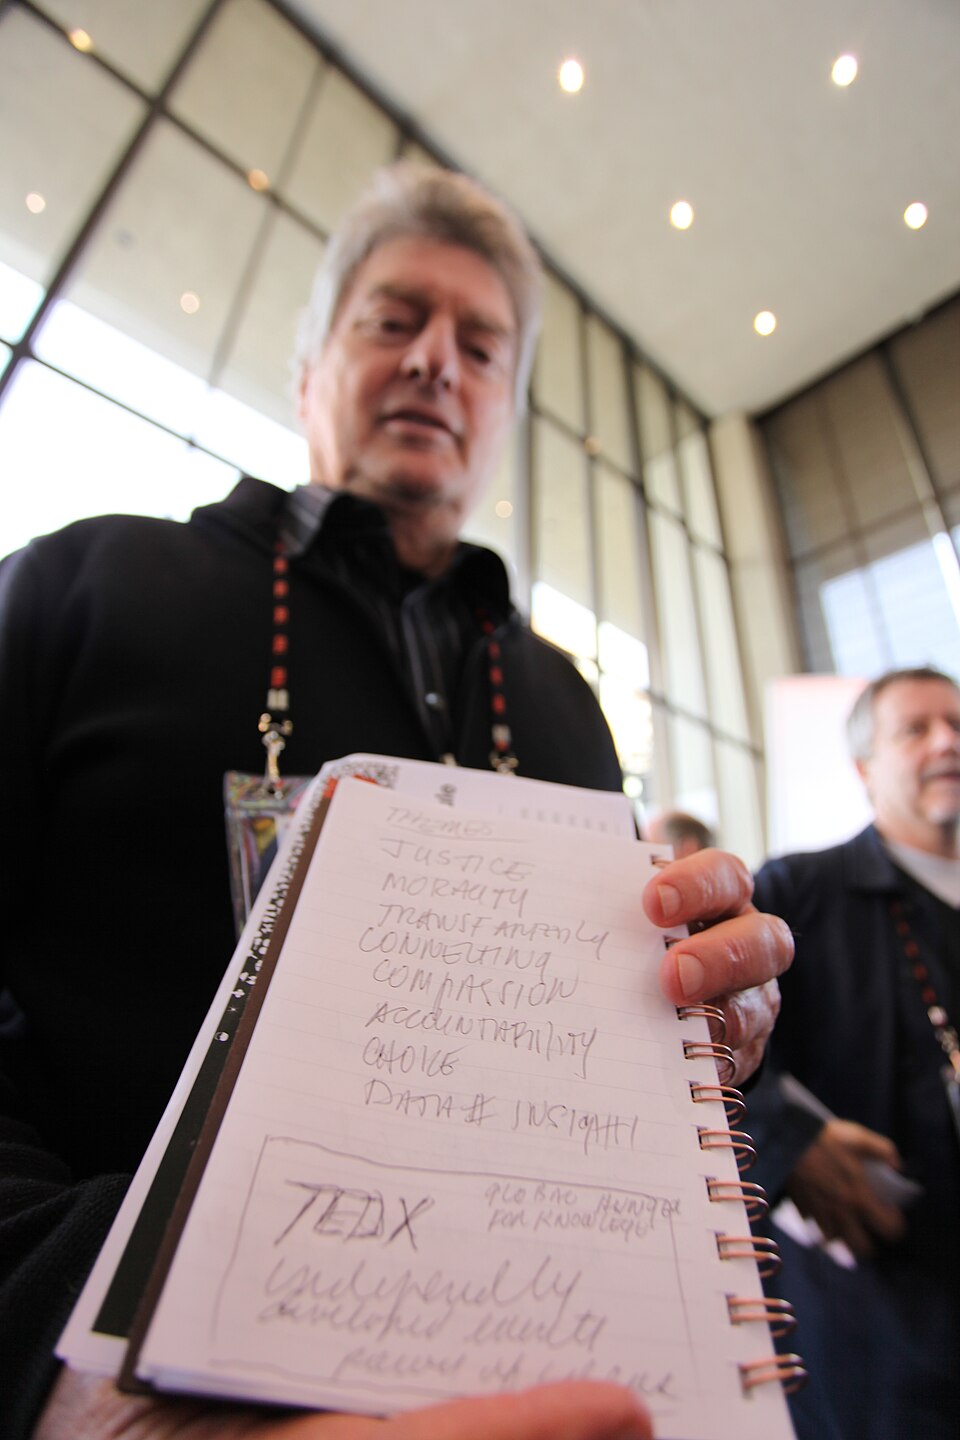 THEMES
JUSTICE
MORALITY
CONNECTING
COMPASSION
ACCOUNTABILITY
CHOICE
DATA INSIGHT
TEDX
GLOBAL HUNGER
FOR KNOWLEDGE
developed events
power of